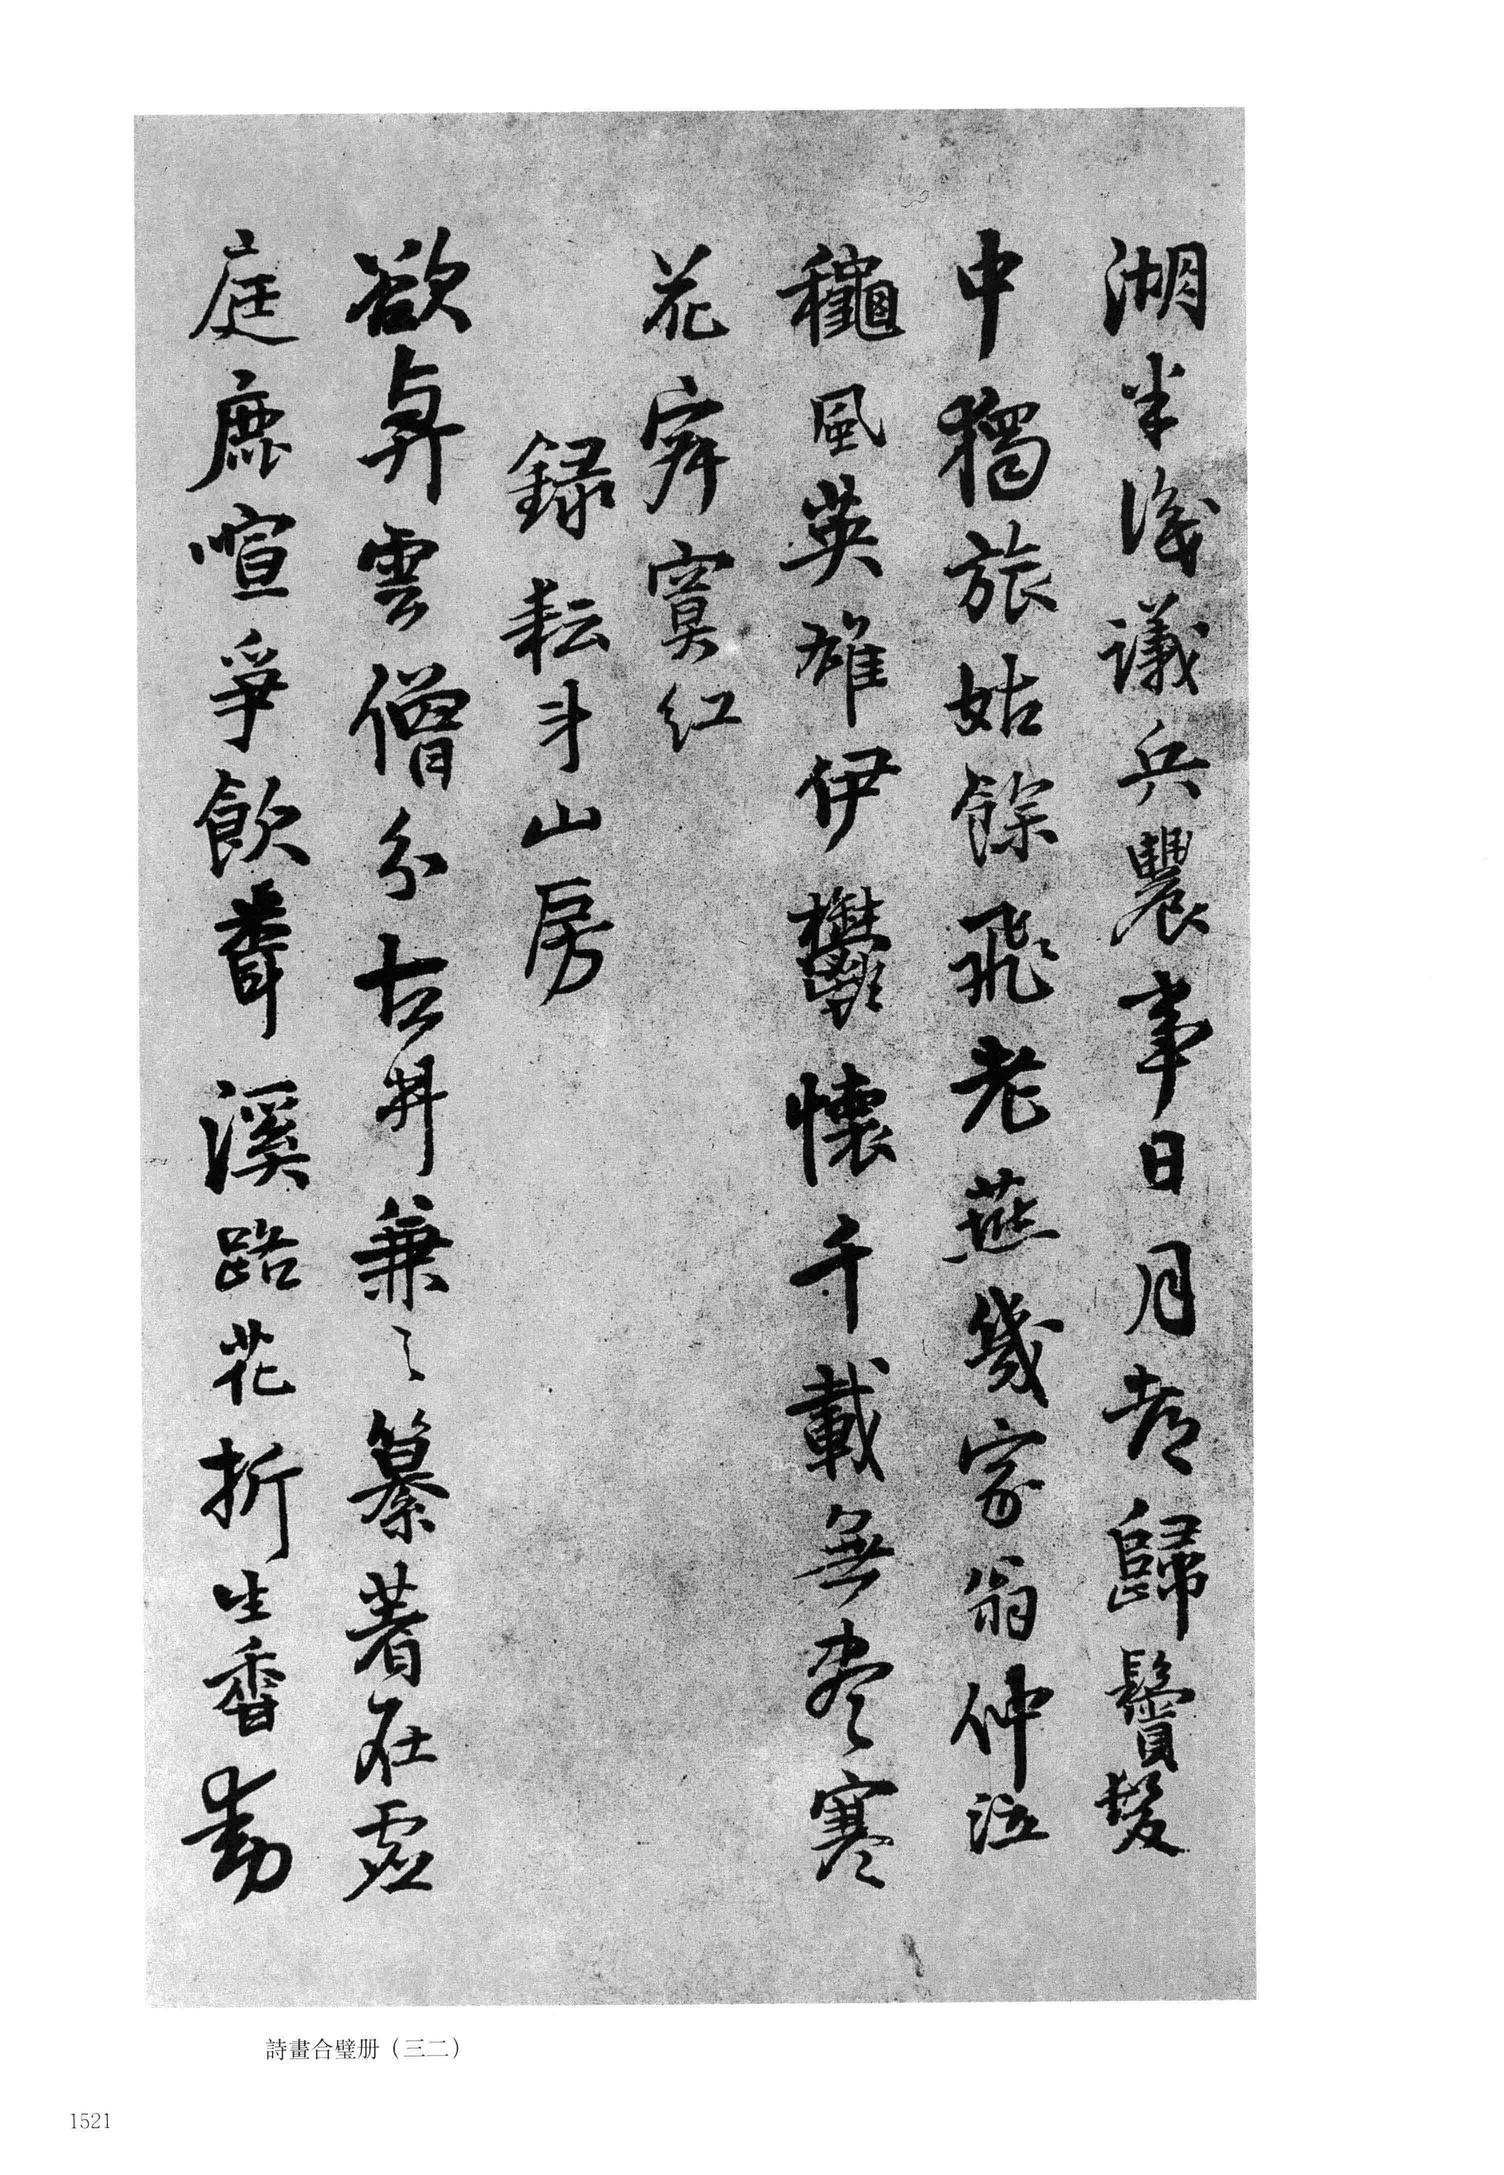 湖半淺議兵農事日月老歸鬢髮
中獨旅姑餘飛老燕幾家翁仲泣
龝風英雄伊鬱懷千載無盡寒
花寂寞紅
錄耘斗山房
欲與雲僧分古井兼之纂著在虛
庭鹿喧爭飲聲溪路花折生香動
詩畫合璧册（三二）
1521